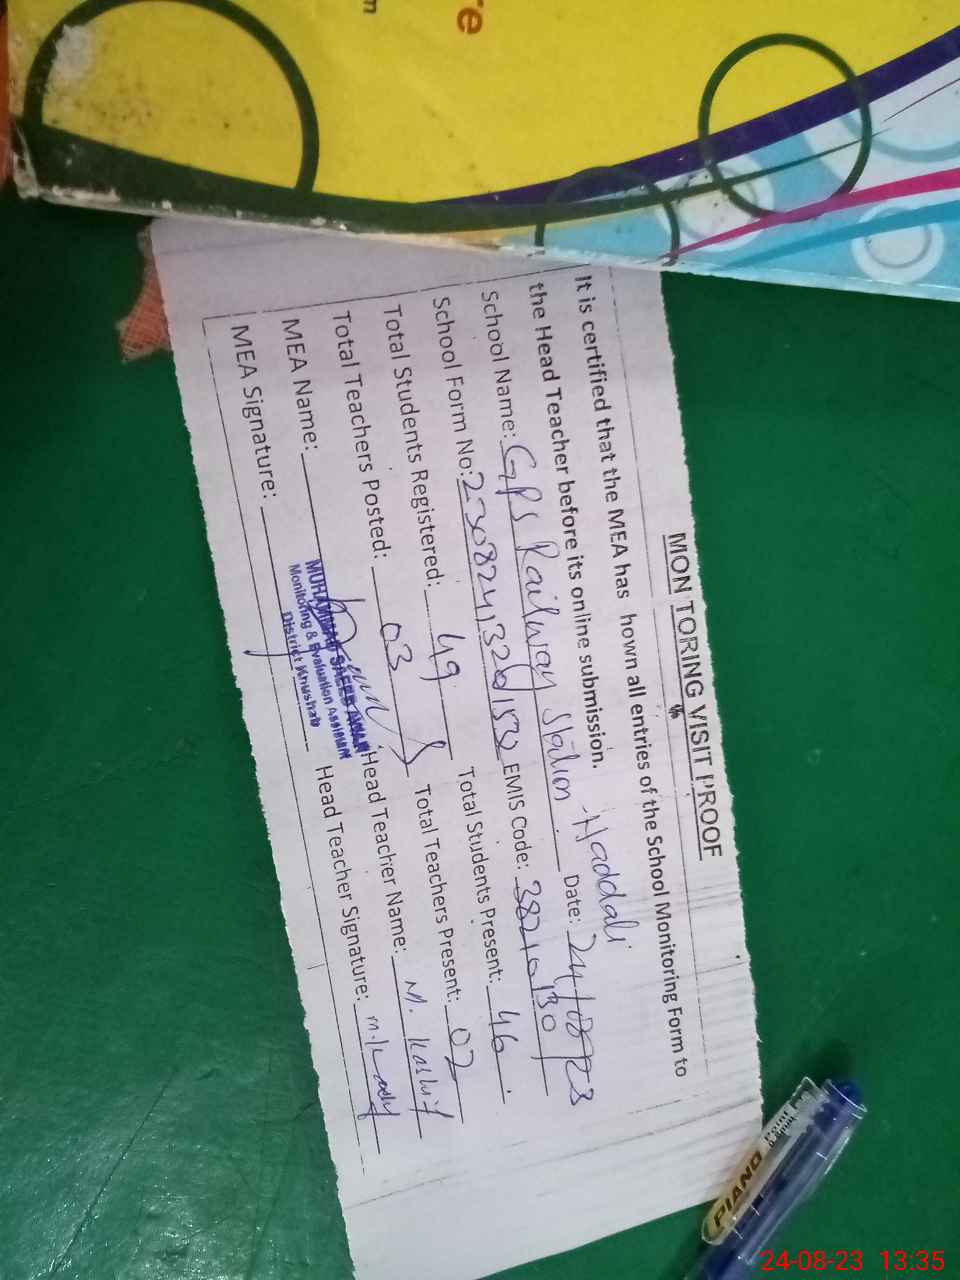 re
m
MON TORING VISIT PROOF
It is certified that the MEA has hown all entries of the School Monitoring Form to
the Head Teacher before its online submission.
School Name: GPS Railway Station Haddali Date: 24/08/23
School Form No: EMIS Code: 38210130
Total Students Registered: 49 Total Students Present: 46
Total Teachers Posted: 03 Total Teachers Present: 02
MEA Name: Head Teacher Name: M. Kashif
MUHAMMAD SAEED AWAN
Monitoring & Evaluation Assistant
District Khushab
MEA Signature: Head Teacher Signature:
PIANO
Point
24-08-23 13:35